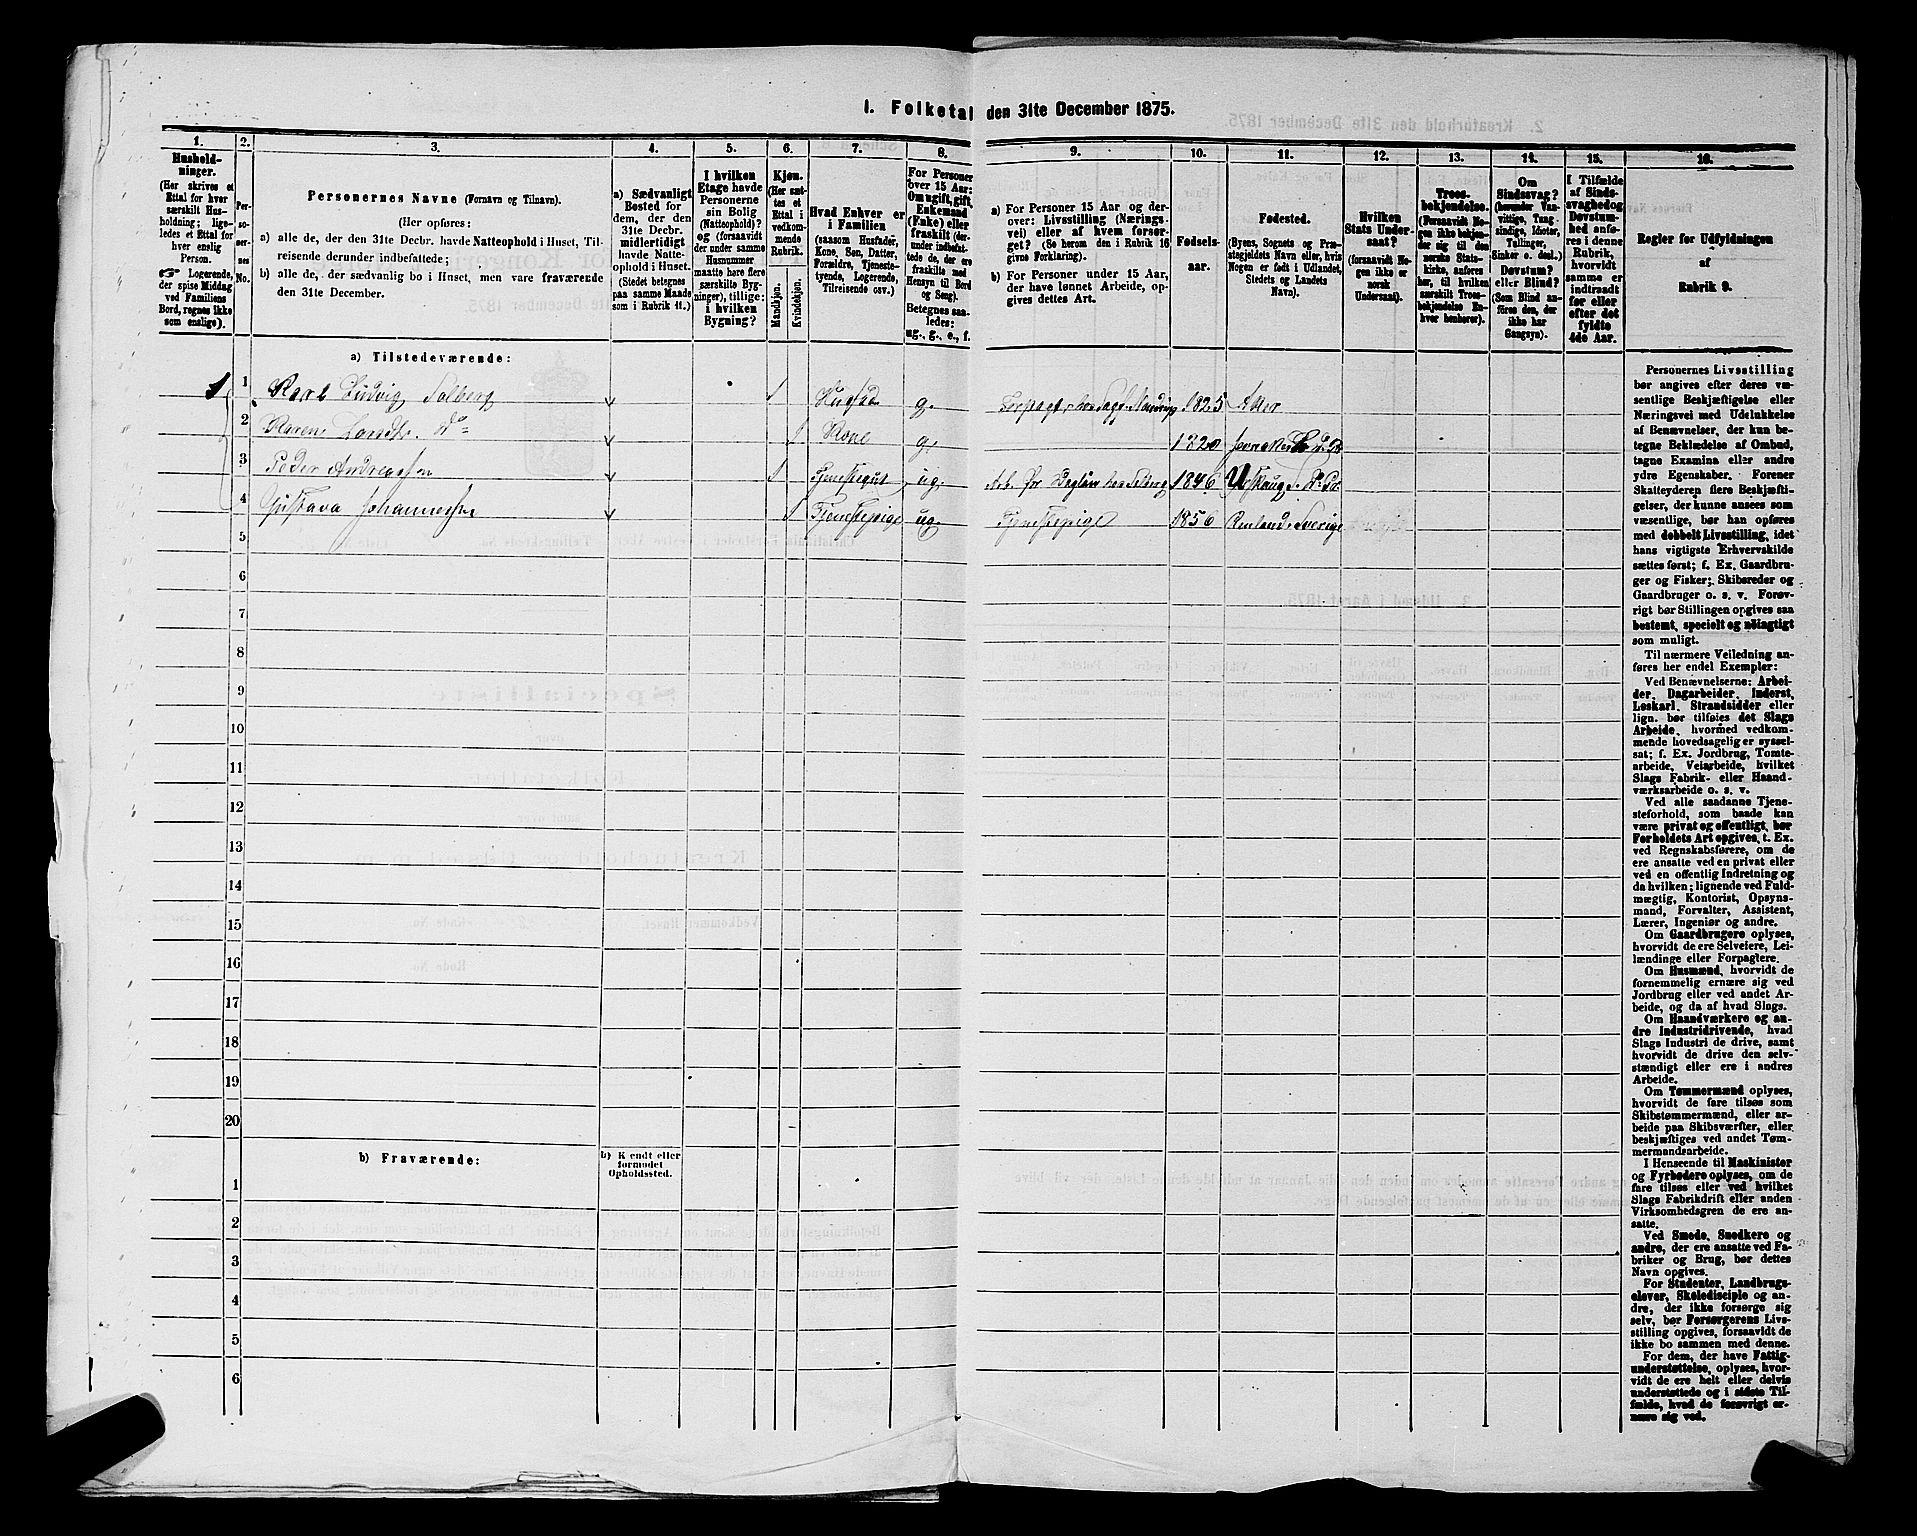 1. Folketal den 31te December 1875.
1.
Hushold-
ninger.
(Her skrives et
Ettal for hver
særskilt Hus-
holdning; lige-
ledes et Ettal for
hver enslig
Person.
☞ Logerende,
der spise Middag
ved Familiens
Bord, regnes ikke
som enslige).
2.
Per-
so-
ner-
nes
No.
3.
Personernes Navne (Fornavn og Tilnavn).
(Her opføres:
a) alle de, der den 31te Decbr. havde Natteophold i Huset, Til-
reisende derunder indbefattede;
b) alle de, der sædvanlig bo i Huset, men vare fraværende
den 31te December.
4.
a) Sædvanligt
Bosted for
dem, der den
31te Decbr.
midlertidigt
havde Natte-
ophold i Huset.
(Stedet betegnes
paa samme Maade
som i Rubrik 11.)
5.
I hvilken
Etage havde
Personerne
sin Bolig
(Natteophold)?
og (forsaavidt
der under samme
Husnummer
maatte høre flere
særskilte Byg-
ninger), tillige:
i hvilken
Bygning?
6.
Kjøn.
(Her sæt-
tes et
Ettal i
vedkom-
mende
Rubrik.
Mandkjøn.
Kvindekjøn.
7.
Hvad Enhver er
i Familien
(saasom Husfader,
Kone, Søn, Datter,
Forældre, Tjeneste-
tyende, Logerende,
Tilreisende osv.)
8.
For Personer
over 15 Aar:
Om ugift, gift,
Enkemand
(Enke) eller
fraskilt (der-
under indbefat-
tede de, der ere
fraskilte med
Hensyn til Bord
og Seng).
Betegnes saa-
ledes:
ug., g., e., f.
9.
a) For Personer 15 Aar og der-
over: Livsstilling (Nærings-
vei) eller af hvem forsør-
get? (Se herom den i Rubrik 16
givne Forklaring).
b) For Personer under 15 Aar,
der have lønnet Arbeide, op-
gives dettes Art.
10.
Fødsels-
aar.
11.
Fødested.
(Byens, Sognets og Præ-
stegjeldets Navn eller, hvis
Nogen er født i Udlandet,
Stedets og Landets
Navn).
12.
Hvilken
Stats Under-
saat?
(forsaavidt No-
gen ikke er
norsk
Undersaat).
13.
Troes-
bekjendelse.
(Forsaavidt No-
gen ikke bekjen-
der sig til den
norske Stats-
kirke, anføres
her, til hvilken
særskilt Troes-
bekjendelse En-
hver henhører).
14.
Om
Sindssvag?
(herunder Van-
vittige, Tung-
sindige, Idioter,
Tullinger,
Sinker o. desl.)
Døvstum?
eller Blind?
(Som Blind an-
føres den, der
ikke har
Gangsyn).
15.
I Tilfælde
af Sinds-
svaghed og
Døvstum-
hed anfø-
res i denne
Rubrik,
hvorvidt
samme er
indtraadt
før eller
efter det
fyldte
4de Aar.
16.
Regler for Udfyldningen
af
Rubrik 9.
a) Tilstedeværende:
1 1 Karl Ludvig Solberg 1 Husfad g. Forpagter 1825 Aker
2 Karen Larsdtr. Do 1 Kone g. 1820
3 Peder Andreassen 1 Tjenestegut ug. 1846 Urskoug
4 Gustava Johannessen 1 Tjenestepige ug. Tjenestepige 1856 Sverige
5
6
7
8
9
10
11
12
13
14
15
16
17
18
19
20
b) Fraværende:
b) Kjendt eller
formodet
Opholdssted.
1
2
3
4
5
6
Personernes Livsstilling
bør angives efter deres væ-
sentlige Beskjæftigelse eller
Næringsvei med Udelukkelse
af Benævnelser, der kun be-
tegne Beklædelse af Ombud,
tagne Examina eller andre
ydre Egenskaber. Forener
Skatteyderen flere Beskjæfti-
gelser, der kunne ansees som
væsentlige, bør han opføres
med dobbelt Livsstilling, idet
hans vigtigste Erhvervskilde
sættes først; f. Ex. Gaardbru-
ger og Fisker; Skibsreder og
Gaardbruger o. s. v. Forøv-
rigt bør Stillingen opgives saa
bestemt, specielt og nøiagtigt
som muligt.
Til nærmere Veiledning an-
føres her endel Exempler:
Ved Benævnelserne: Arbei-
der, Dagarbeider, Inderst,
Løskarl, Strandsidder eller
lign. bør tilføies det Slags
Arbeide, hvormed vedkom-
mende hovedsagelig er syssel-
sat; f. Ex. Jordbrug, Tomte-
arbeide, Veiarbeide, hvilket
Slags Fabrik- eller Haand-
værksarbeide o. s. v.
Ved alle saadanne Tjene-
steforhold, som baade kan
være privat og offentligt, bør
Forholdets Art opgives, t. Ex.
ved Regnskabsførere, om de
ere ansatte ved en privat eller
ved en offentlig Indretning og
da hvilken; lignende ved Fuld-
mægtig, Kontorist, Opsyns-
mand, Forvalter, Assistent,
Lærer, Ingeniør og andre.
Om Gaardbrugere oplyses,
hvorvidt de ere Selveiere, Lei-
lændinge eller Forpagtere.
Om Husmænd, hvorvidt de
fornemmelig ernære sig ved
Jordbrug eller ved andet Ar-
beide, og da af hvad Slags.
Om Haandværkere og an-
dre Industridrivende, hvad
Slags Industri de drive, samt
hvorvidt de drive den selv-
stændigt eller ere i andres
Arbeide.
Om Tømmermænd oplyses,
hvorvidt de fare tilsøs som
Skibstømmermænd, eller ar-
beide paa Skibsværfter, eller
beskjæftiges ved andet Tøm-
mermandsarbeide.
I Henseende til Maskinister
og Fyrbødere oplyses, om de
fare tilsøs eller ved hvilket
Slags Fabrikdrift eller anden
Virksomhedsgren de ere an-
satte.
Ved Smede, Snedkere og
andre, der ere ansatte ved Fa-
briker og Brug, bør dettes
Navn opgives.
For Studenter, Landbrugs-
elever, Skoledisciple og an-
dre, der ikke forsørge sig
selv, bør Forsørgerens Livs-
stilling opgives, forsaavidt de
ikke bo sammen med denne.
For dem, der have Fattig-
understøttelse, oplyses, hvor-
vidt de ere helt eller delvis
understøttede og i sidste Til-
fælde, hvad de forøvrigt er-
nære sig ved.